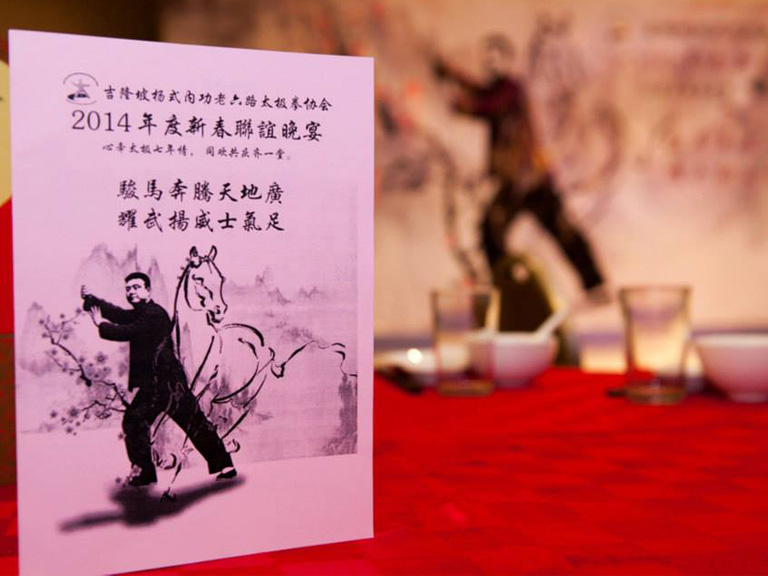 吉隆坡杨式内功老六路太极拳协会
2014年度新春聯誼晚宴
心牵太极七年情，同欢共庆齐一堂。
駿馬奔騰天地廣
耀武揚威士氣足